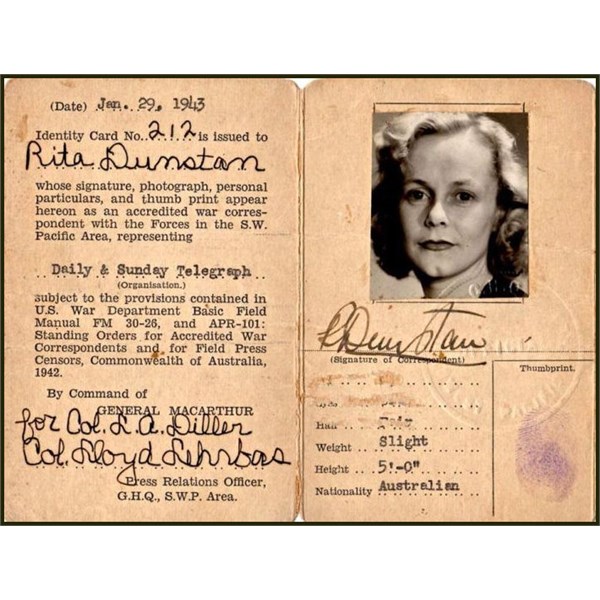 (Date) Jan. 29, 1943
Identity Card No. 212 is issued to
Rita Dunstan
whose signature, photograph, personal
particulars, and thumb print appear
hereon as an accredited war corres-
pondent with the Forces in the S.W.
Pacific Area, representing
Daily & Sunday Telegraph
(Organisation.)
subject to the provisions contained in
U.S. War Department Basic Field
Manual FM 30-26, and APR-101:
Standing Orders for Accredited War
Correspondents and for Field Press
Censors, Commonwealth of Australia,
1942.
By Command of
GENERAL MACARTHUR
for Col. L. A. Diller
Col. Lloyd Lehrbas
Press Relations Officer,
G.H.Q., S.W.P. Area.
R Dunstan
(Signature of Correspondent)
Thumbprint.
Hair
Weight Slight
Height 5'-0"
Nationality Australian